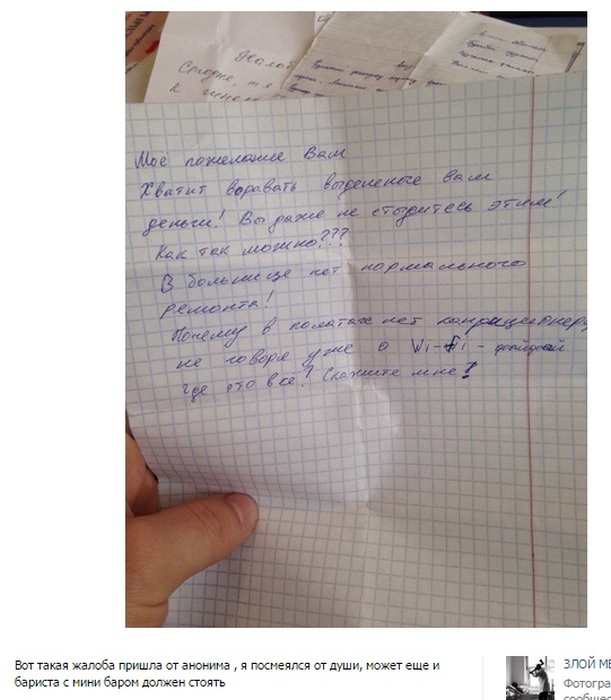 Жалоб
Сегодня,
к
Моё пожелание Вам
Хватит воравать выделеные вам
деньги! Вы даже не стыдитесь этим!
Как так можно???
В больнице нет нормального
ремонта!
Почему в полатах нет кондиционеру
не говоря уже о Wi-fi - файфай
где это всё? Скажите мне!
Вот такая жалоба пришла от анонима , я посмеялся от души, может еще и
бариста с мини баром должен стоять
ЗЛОЙ МЕ
Фотогра
сообщес